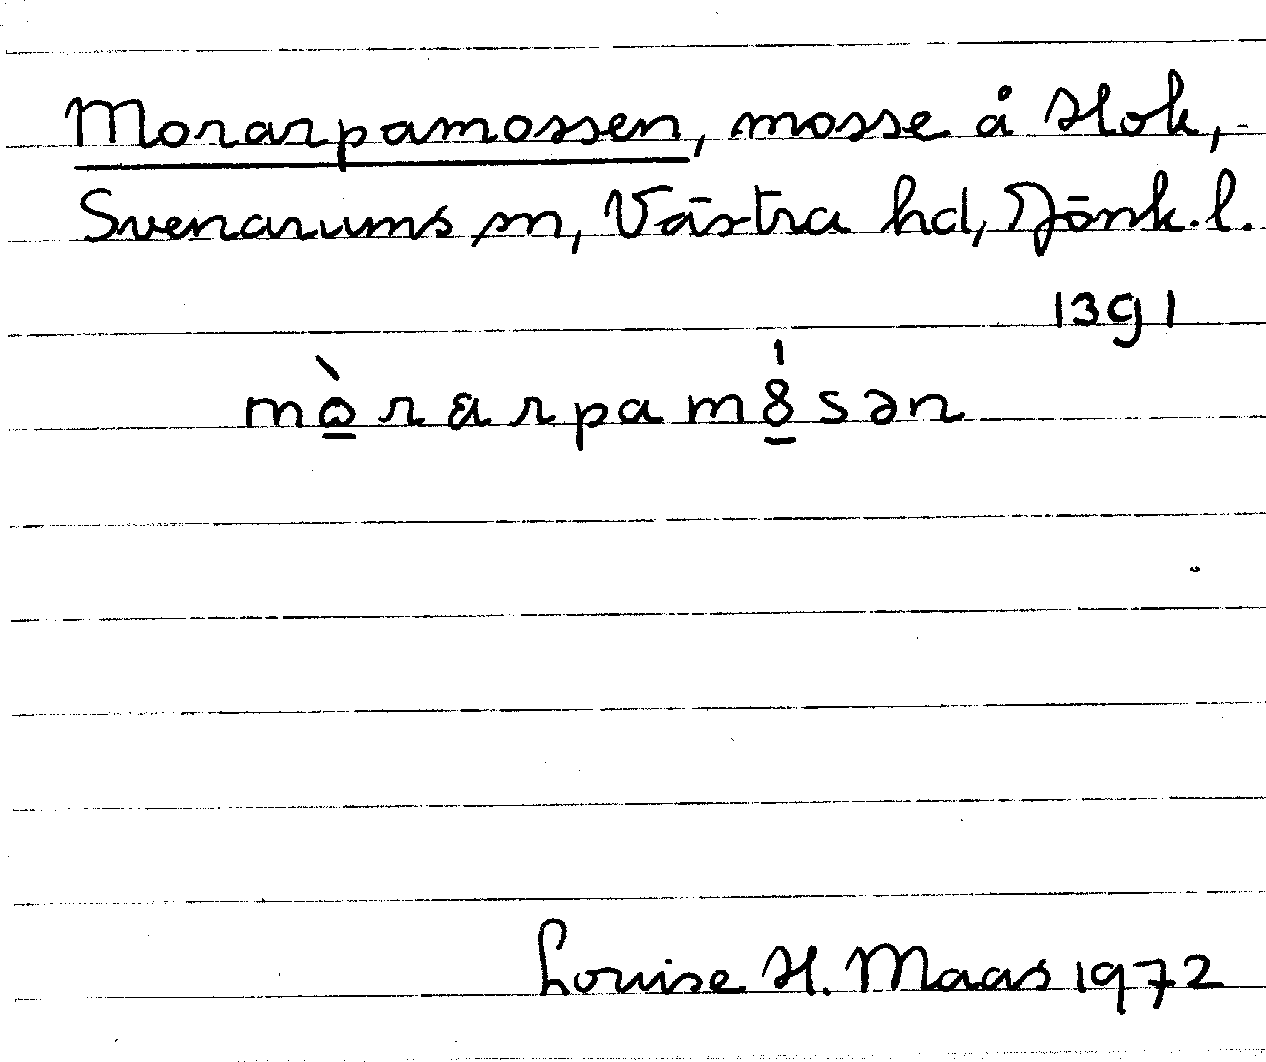 Morarpamossen, mosse å Hok,
Svenarums sn, Västra hd, Jönk. l.
1391
mò̲rarpamó̲sən
Louise H. Maas 1972